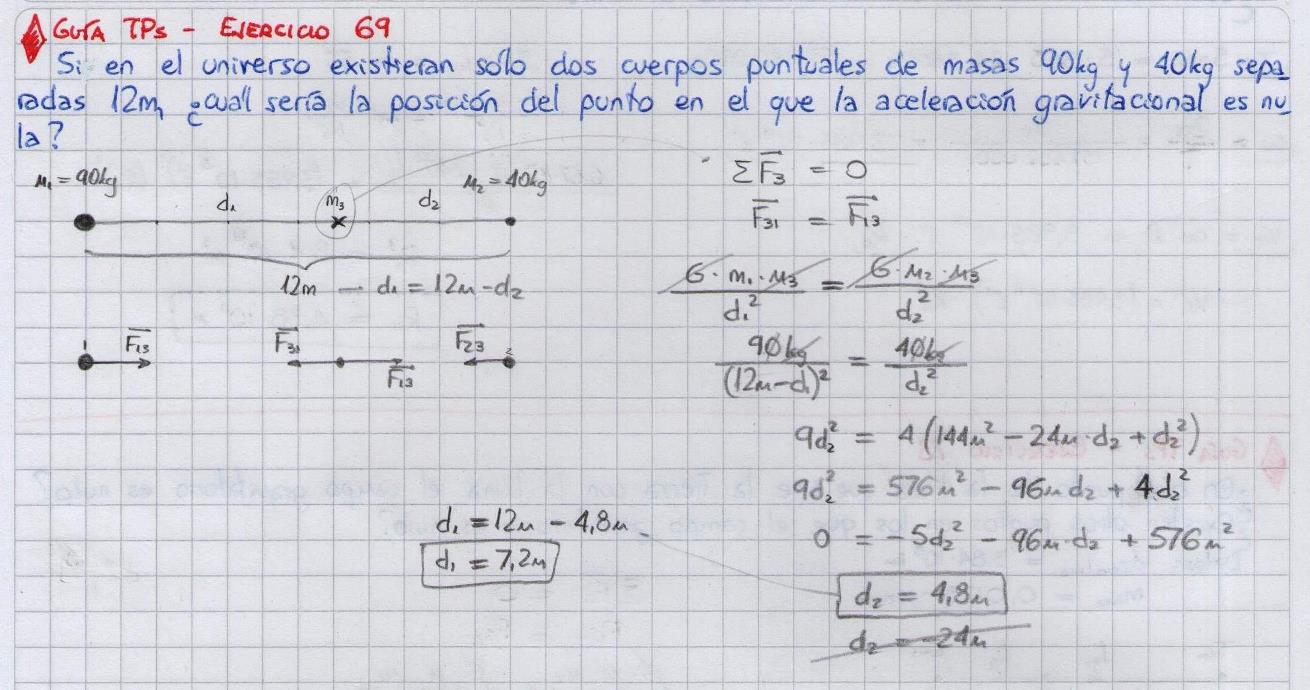 GUÍA TPs - EJERCICIO 69
Si en el universo existieran sólo dos cuerpos puntuales de masas 90kg y 40kg sepa
radas 12m, ¿cuál sería la posición del punto en el que la aceleración gravitacional es nu
la?
M₁ = 90kg
d₁
m₃
d₂
M₂ = 40kg
12m — d₁ = 12m - d₂
1 F₁₃
F₃₁
F₁₃
F₂₃ 2
ΣF₃ = 0
F₃₁ = F₁₃
G · m₁ · M₃ / d₁² = G · M₂ · M₃ / d₂²
90kg / (12m - d₁)² = 40kg / d₂²
9d₂² = 4(144m² - 24m·d₂ + d₂²)
9d₂² = 576m² - 96m d₂ + 4d₂²
0 = -5d₂² - 96m·d₂ + 576m²
d₂ = 4,8m
d₂ = -24m
d₁ = 12m - 4,8m
d₁ = 7,2m